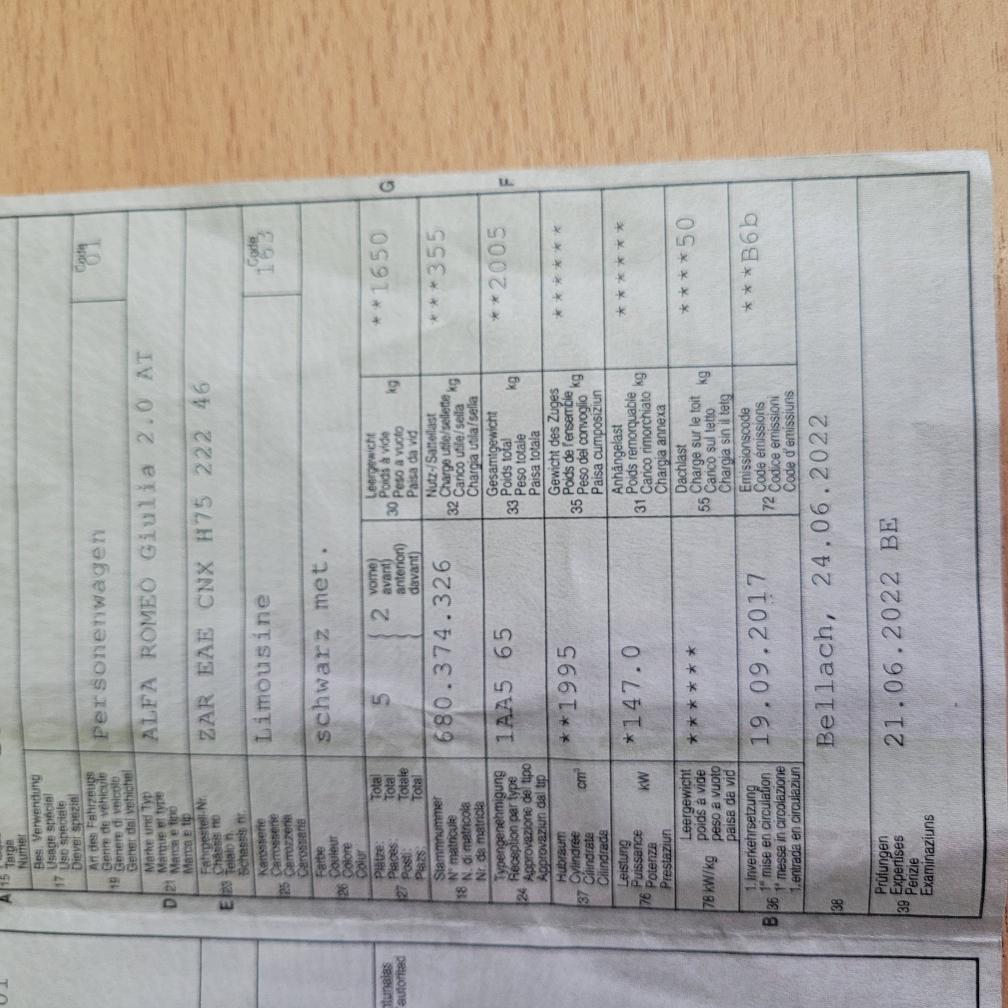 A 15
Targa
Numer
Bes. Verwendung
17 Usage spécial
Uso speciale
Diever spezial
Art des Fahrzeugs
Genre de véhicule
19 Genere di veicolo
Gener dal vehichel
Personenwagen
Code
01
Marke und Typ
D 21 Marque et type
Marca e tipo
Marca e tip
ALFA ROMEO Giulia 2.0 AT
Fahrgestell-Nr.
E 23 Châssis no
Telaio n.
Schassis nr.
ZAR EAE CNX H75 222 46
Karosserie
25 Carrosserie
Carrozzeria
Carossaria
Limousine
Code
163
Farbe
26 Couleur
Colore
Colur
schwarz met.
Plätze: Total
27 Places: Total
Posti: Totale
Plazs: Total
5 { 2 vorne)
avant)
anteriori)
davant)
Leergewicht
30 Poids à vide kg
Peso a vuoto
Paisa da vid
**1650 G
Stammnummer
18 N° matricule
N. di matricola
Nr. da matricla
680.374.326
Nutz-/Sattellast
32 Charge utile/sellette kg
Carico utile/sella
Chargia utila/sella
***355
Typengenehmigung
24 Réception par type
Approvazione del tipo
Approvaziun dal tip
1AA5 65
Gesamtgewicht
33 Poids total kg
Peso totale
Paisa totala
**2005 F
Hubraum
37 Cylindrée cm³
Cilindrata
Cilindrada
**1995
Gewicht des Zuges
35 Poids de l'ensemble kg
Peso del convoglio
Paisa cumposiziun
******
Leistung
76 Puissance kW
Potenza
Prestaziun
*147.0
Anhängelast
31 Poids remorquable kg
Carico rimorchiato
Chargia annexa
******
Leergewicht
78 kW/kg poids à vide
peso a vuoto
paisa da vid
******
Dachlast
55 Charge sur le toit kg
Carico sul tetto
Chargia sin il tetg
****50
1. Inverkehrsetzung
B 36 1re mise en circulation
1a messa in circolazione
1. entrada en circulaziun
19.09.2017
Emissionscode
72 Code émissions
Codice emissioni
Code d'emissiuns
***B6b
38 Bellach, 24.06.2022
Prüfungen
39 Expertises
Perizie
Examinaziuns
21.06.2022 BE
autoritad
01